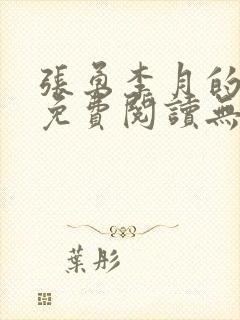 張勇李月的
免費閱讀無
葉彤